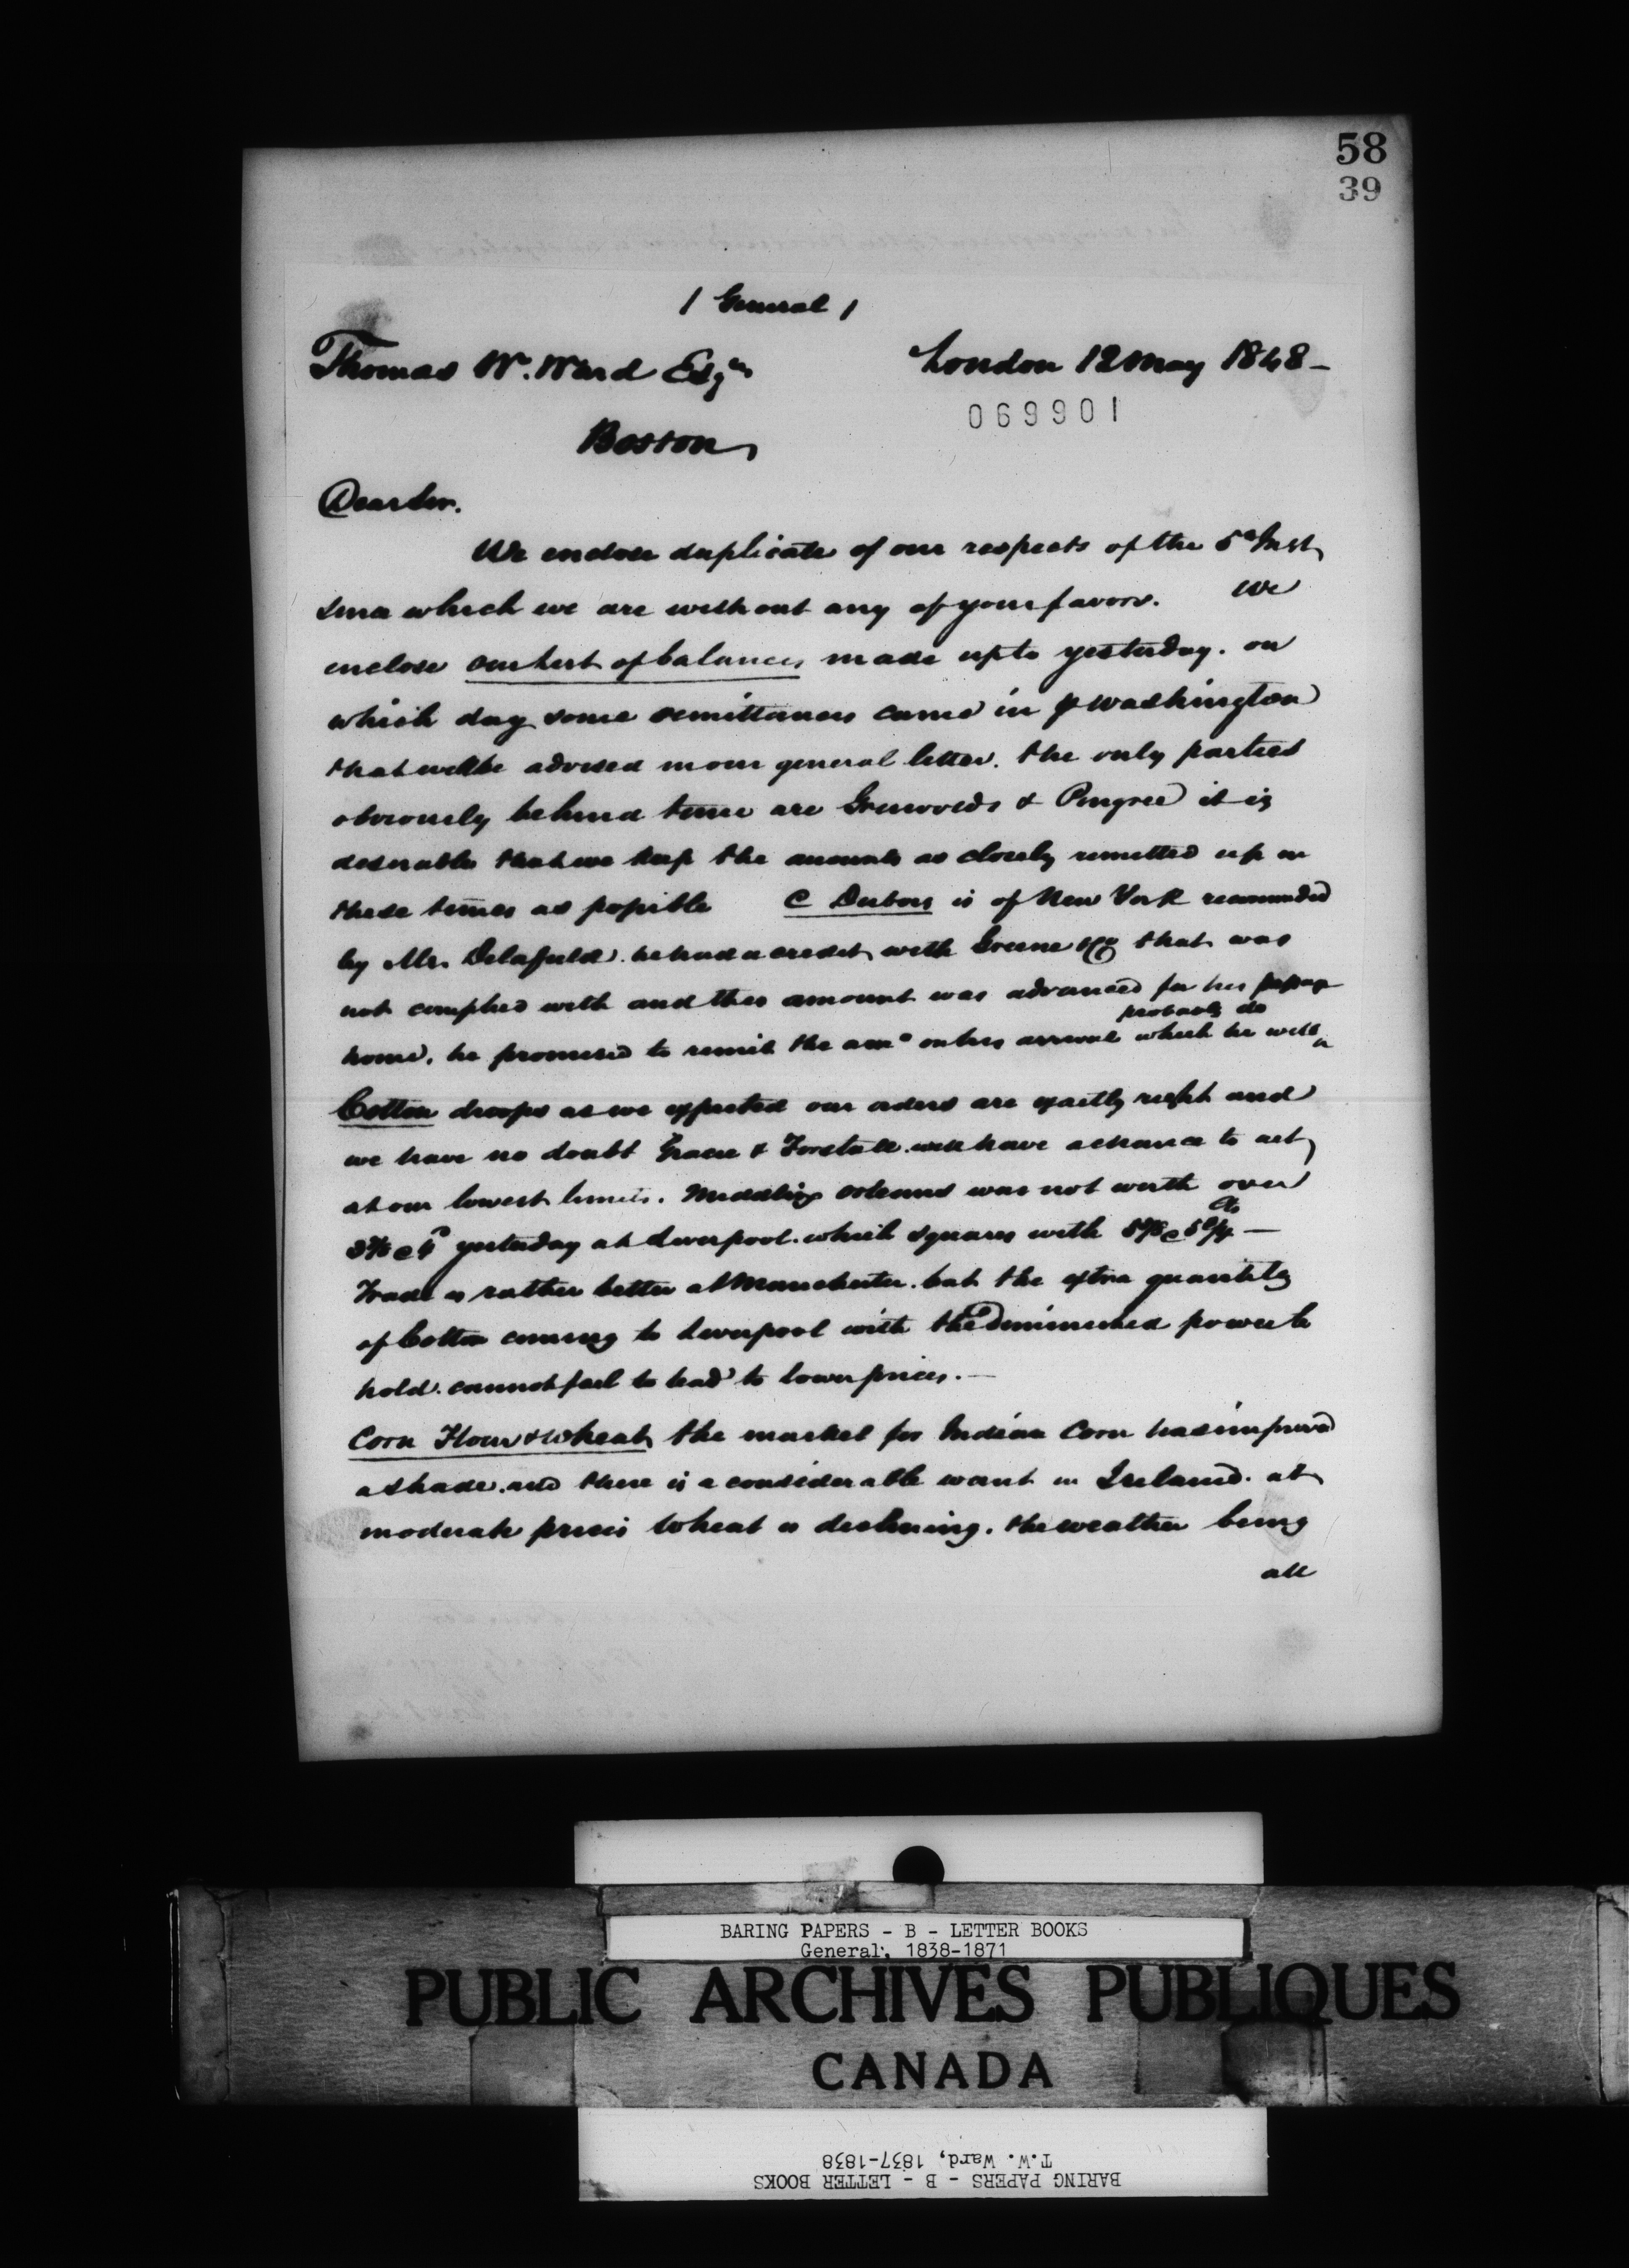 58
39
/ General /
Thomas W. Ward Esqr London 12 May 1848 -
069901
Boston
Dear Sir.
We enclose duplicate of our respects of the 5th Inst
since which we are without any of your favors. We
enclose our list of balances made up to yesterday. on
which day some remittances came in p Washington
that will be advised in our general letter. the only parties
obviously behind time are & Pingree it is
desirable that we keep the accounts as closely remitted up in
these times as possible C Dubois is of New York recommended
by Mr. Delafield. he had a credit with Greene & Co that was
not complied with and this amount was advanced for his passage
home. he promised to remit the amo on his arrival which he will probably do
Cotton droops as we expected our orders are exactly right and
we have no doubt & Forstall will have a chance to act
at our lowest limits. Middling Orleans was not worth over
yesterday at Liverpool. which squares with
Trade is rather better at Manchester. but the extra quantity
of Cotton coming to Liverpool with the diminished power to
hold. cannot fail to lead to lower prices. —
Corn Flour & Wheat the market for Indian Corn has improved
a shade. and there is a considerable want in Ireland. at
moderate prices Wheat is declining. the weather being
all
BARING PAPERS - B - LETTER BOOKS
General, 1838-1871
PUBLIC ARCHIVES PUBLIQUES
CANADA
T.W. Ward, 1837-1838
BARING PAPERS - B - LETTER BOOKS